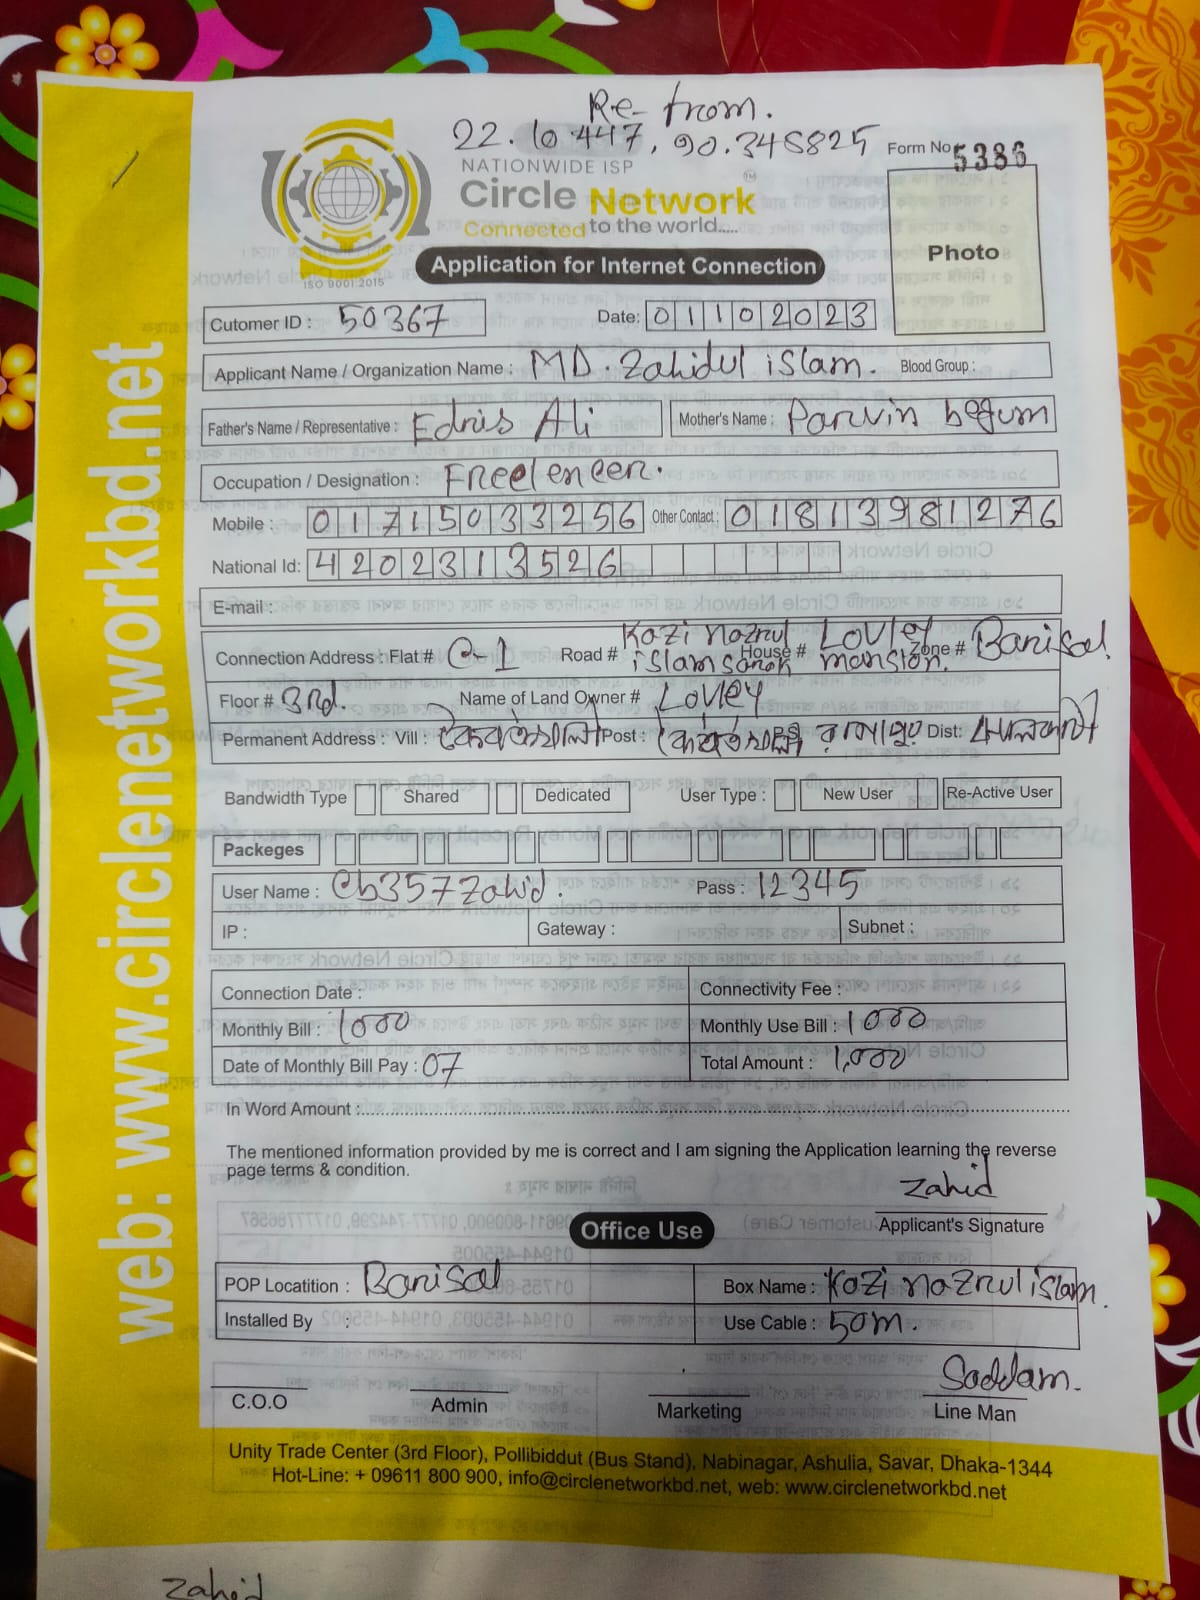 Re- from.
22.10.447, 90.348825
Form No 5386
NATIONWIDE ISP
Circle Network TM
Connected to the world.....
ISO 9001:2015
Photo
Application for Internet Connection
Cutomer ID : 50367 Date: 01102023
Applicant Name / Organization Name : MD. Zahidul islam. Blood Group :
Father's Name / Representative : Edris Ali Mother's Name : Parvin begum
Occupation / Designation : Freelencer.
Mobile : 01715033256 Other Contact : 01813981276
National Id: 4202313526
E-mail :
Connection Address : Flat # C-1 Road # Kazi nazrul islam sarak House # Lovley mansion. Zone # Barisal
Floor # 3rd. Name of Land Owner # Lovley
Permanent Address : Vill : Post : P.S Dist:
Bandwidth Type Shared Dedicated User Type : New User Re-Active User
Packeges
User Name : Cb357Zahid. Pass : 12345
IP : Gateway : Subnet :
Connection Date : Connectivity Fee :
Monthly Bill : 1000 Monthly Use Bill : 1000
Date of Monthly Bill Pay : 07 Total Amount : 1,000
In Word Amount :
The mentioned information provided by me is correct and I am signing the Application learning the reverse
page terms & condition.
Zahid
Applicant's Signature
Office Use
POP Locatition : Barisal Box Name : Kazi nazrul islam.
Installed By : Use Cable : 50m.
Saddam.
C.O.O Admin Marketing Line Man
Unity Trade Center (3rd Floor), Pollibiddut (Bus Stand), Nabinagar, Ashulia, Savar, Dhaka-1344
Hot-Line: + 09611 800 900, info@circlenetworkbd.net, web: www.circlenetworkbd.net
web: www.circlenetworkbd.net
Zahid